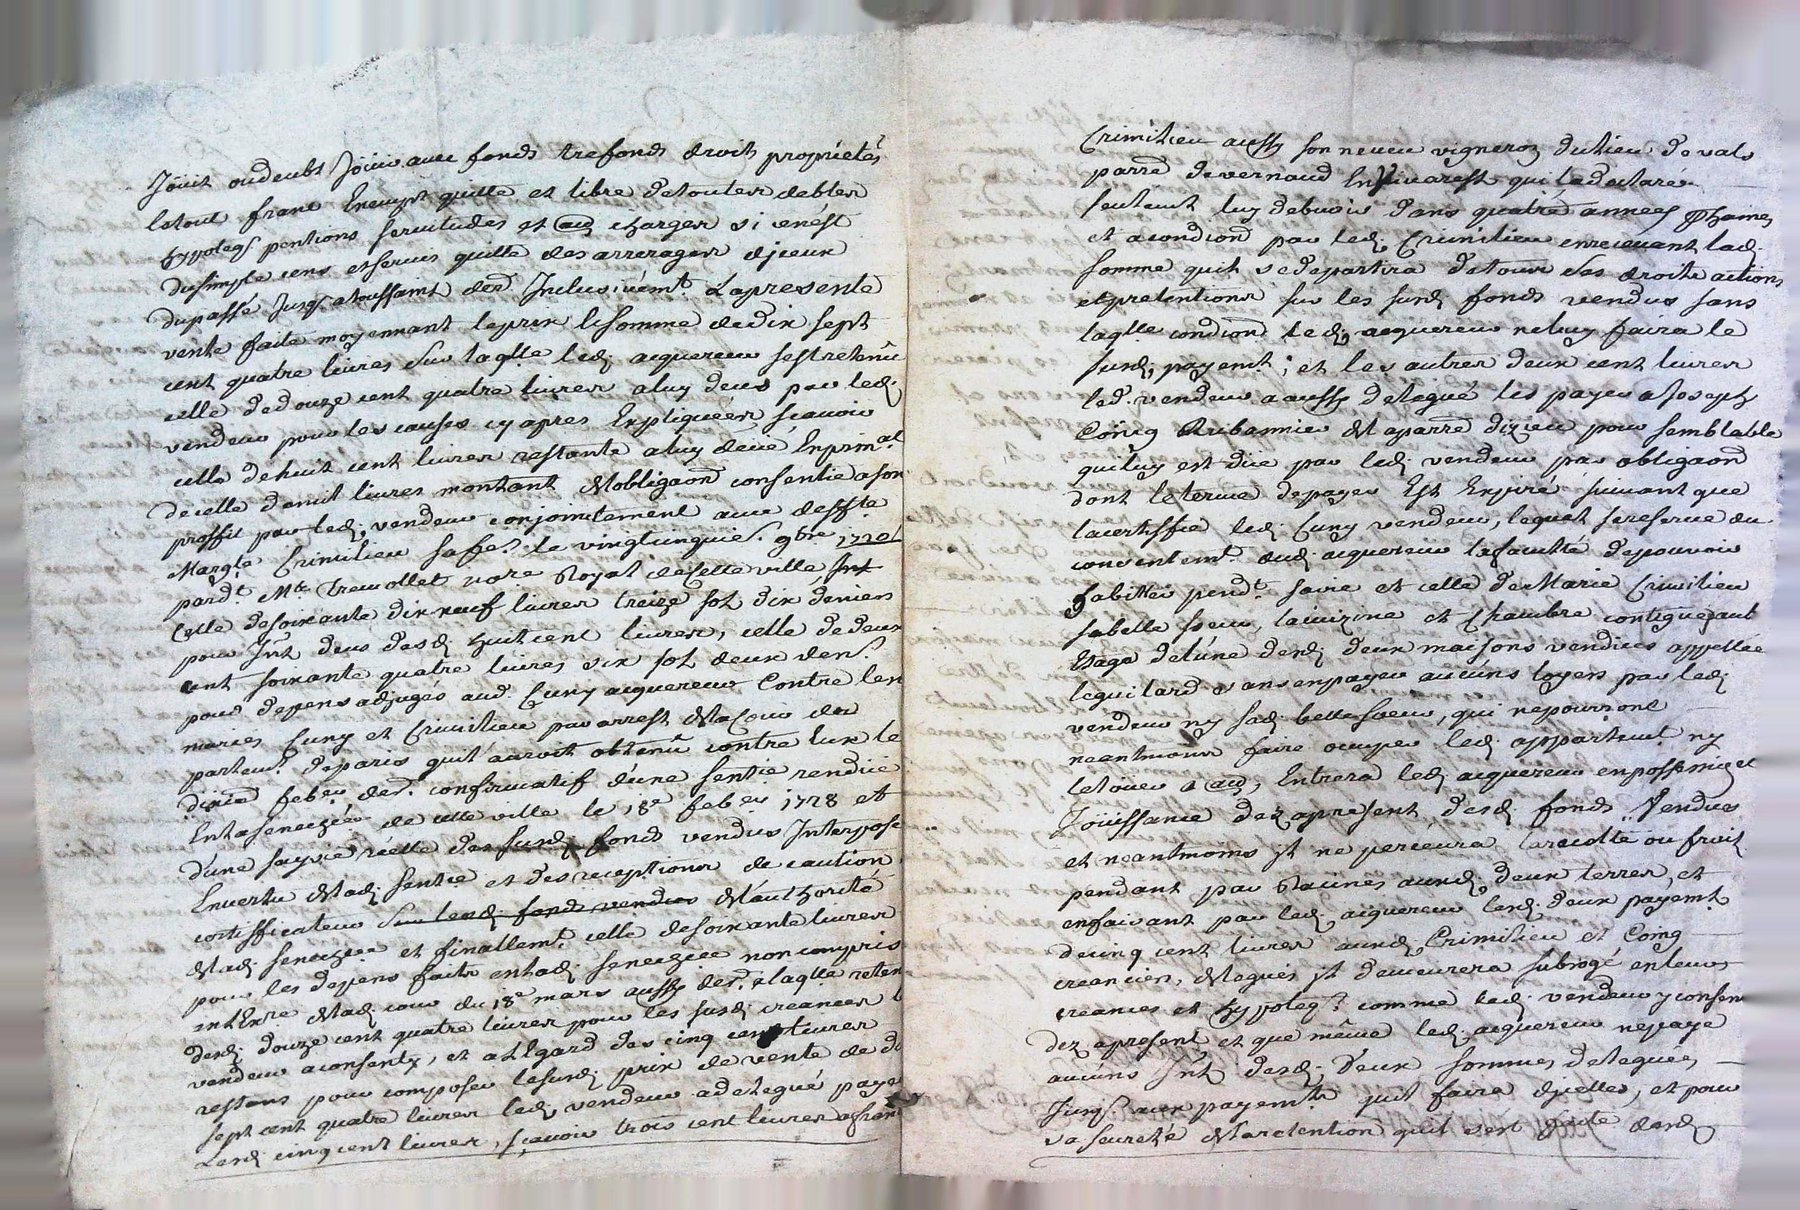 Joüit ou deubt Joüir avec fonds trefonds droits proprietés
le tout franc Exempt quitte et libre de toutes debtes
hyppoteqs pentions servitudes et aug charges si ce n'est
du simple cens et servis quitte des arrerages d'jceux
du passé Jusqs a toussaint der Inclusivemt. La presente
vente faite moyennant le prix & somme de dix sept
cent quatre livres sur laqlle ledj acquereur s'est retenüe
celle de douze cent quatre livres a luy deus par ledj
vendeur pour les causes cy apres Expliquées, scavoir
celle de huit cent livres restante a luy deüe En prinal
de celle de mil livres montant d'obligaon consentie a son
proffit par ledj vendeur conjointement avec deffte
Margte Crimilieu sa fe. le vingt cinquie. 9bre 1720
pardt. Me Tremollet nore Royal de cette ville
Celle de soixante dix neuf livres treize sol dix deniers
pour Int deus desdj huit cent livres, celle de deux
cent soixante quatre livres six sol deux den.
pour depens adjugés aud. Cuny acquereur Contre les
mariés Cuny et Crimilieu par arrest de la Cour du
parlemt. de paris qu'il auroit obtenû contre Eux le
feber der. confirmatif d'une sentie rendüe
En la senechée de cette ville le 18e feber 1728 et
d'une saysie réelle des susdj fonds vendus Interposé
En vertu de ladj sentce et des receptions de caution
certifficateur sur lesdj fonds vendus de l'authorité
de ladj senechée et finallemt. celle de soixante livres
pour les depens faits en ladj senechée non compris
de ladj cour du 18e mars aussy der. laqlle reten
desdj douze cent quatre livres pour les susdj creances
vendeur a consenty, et a l'Egard des cinq cent livres
restans pour composer le susdj prix de vente de d
sept cent quatre livres ledj vendeur a delegué payer
Lesdj cinq cent livres, scavoir trois cent livres a fran
Crimilieu aussy son neveu vigneron du lieu de vals
parre de vernaud En vivarest qu'il a declaré
seulemt luy debvoir dans quatre années prhaines
et a condion par ledj Crimilieu en recevant lad.
somme qu'il se departira de tous ses droits actions
et pretentions sur les susdj fonds vendus sans
laqlle condion ledj acquereur ne luy faira le
susdj payemt; et les autres deux cent livres
led. vendeur a aussy delegué les payer a Joseph
Coing Rubannier de la parre d'izieu pour semblable
qui luy est düe par ledj vendeur par obligaon
dont le terme de payer Est Expiré suivant que
l'a certiffié ledj Cuny vendeur, lequel se reserve du
consentemt. dudj acquereur la faculté de pouvoir
habitter pendt. sa vie et celle de Marie Crimilieu
sa belle soeur, la cuizine et Chambre contigue
Etage de l'une desdj deux maisons vendües appellée
lequilard sans en payer aucuns loyers par ledj
vendeur ny sadj belle soeur, qui ne pourront
neantmoins faire occuper ledj appartemt ny
le loüer a aug, Entrera ledj acquereur en possession et
Joüissance dez a present desdj fonds Vendus
et neantmoins jl ne percevra la recolte ou fruits
pendant par Racines auxdj deux terres, et
en faisant par ledj acquereur lesdj deux payemts
de cinq cent livres auxdj Crimilieu et Coing
creanciers, delegués jl demeurera subrogé en leurs
creances et hyppoteqs. comme ledj vendeur y consent
dez a present et que même ledj acquereur ne paye
aucuns Int desdj deux sommes deleguées
Jusqs. aux payemts qu'il faire d'jcelles, et pour
sa seureté de la retention qu'il s'est faite desdj